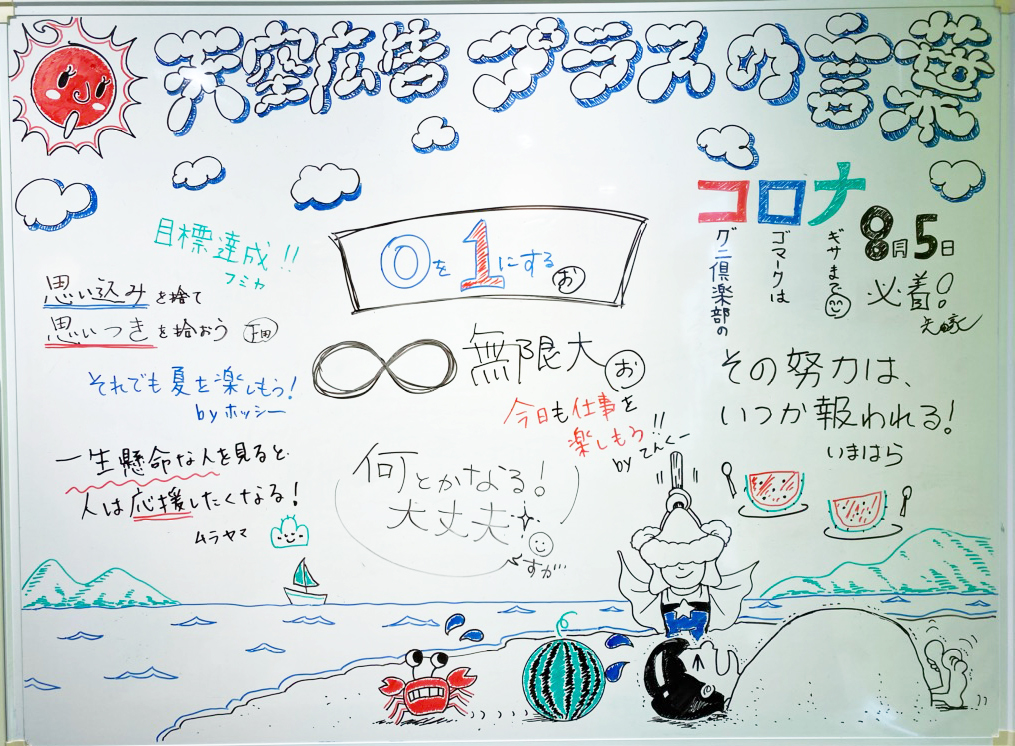 天空広告 プラスの言葉
目標達成!!
フミカ
思い込みを捨て
思いつきを拾おう 下田
それでも夏を楽しもう!
by ホッシー
一生懸命な人を見ると
人は応援したくなる!
ムラヤマ
0を1にする お
∞ 無限大 お
今日も仕事を
楽しもう!!
by てんくー
何とかなる!
大丈夫
すが
コロナ
グニ倶楽部の
ゴマークは
ギサまで
8月5日
必着!
その努力は、
いつか報われる!
いまはら